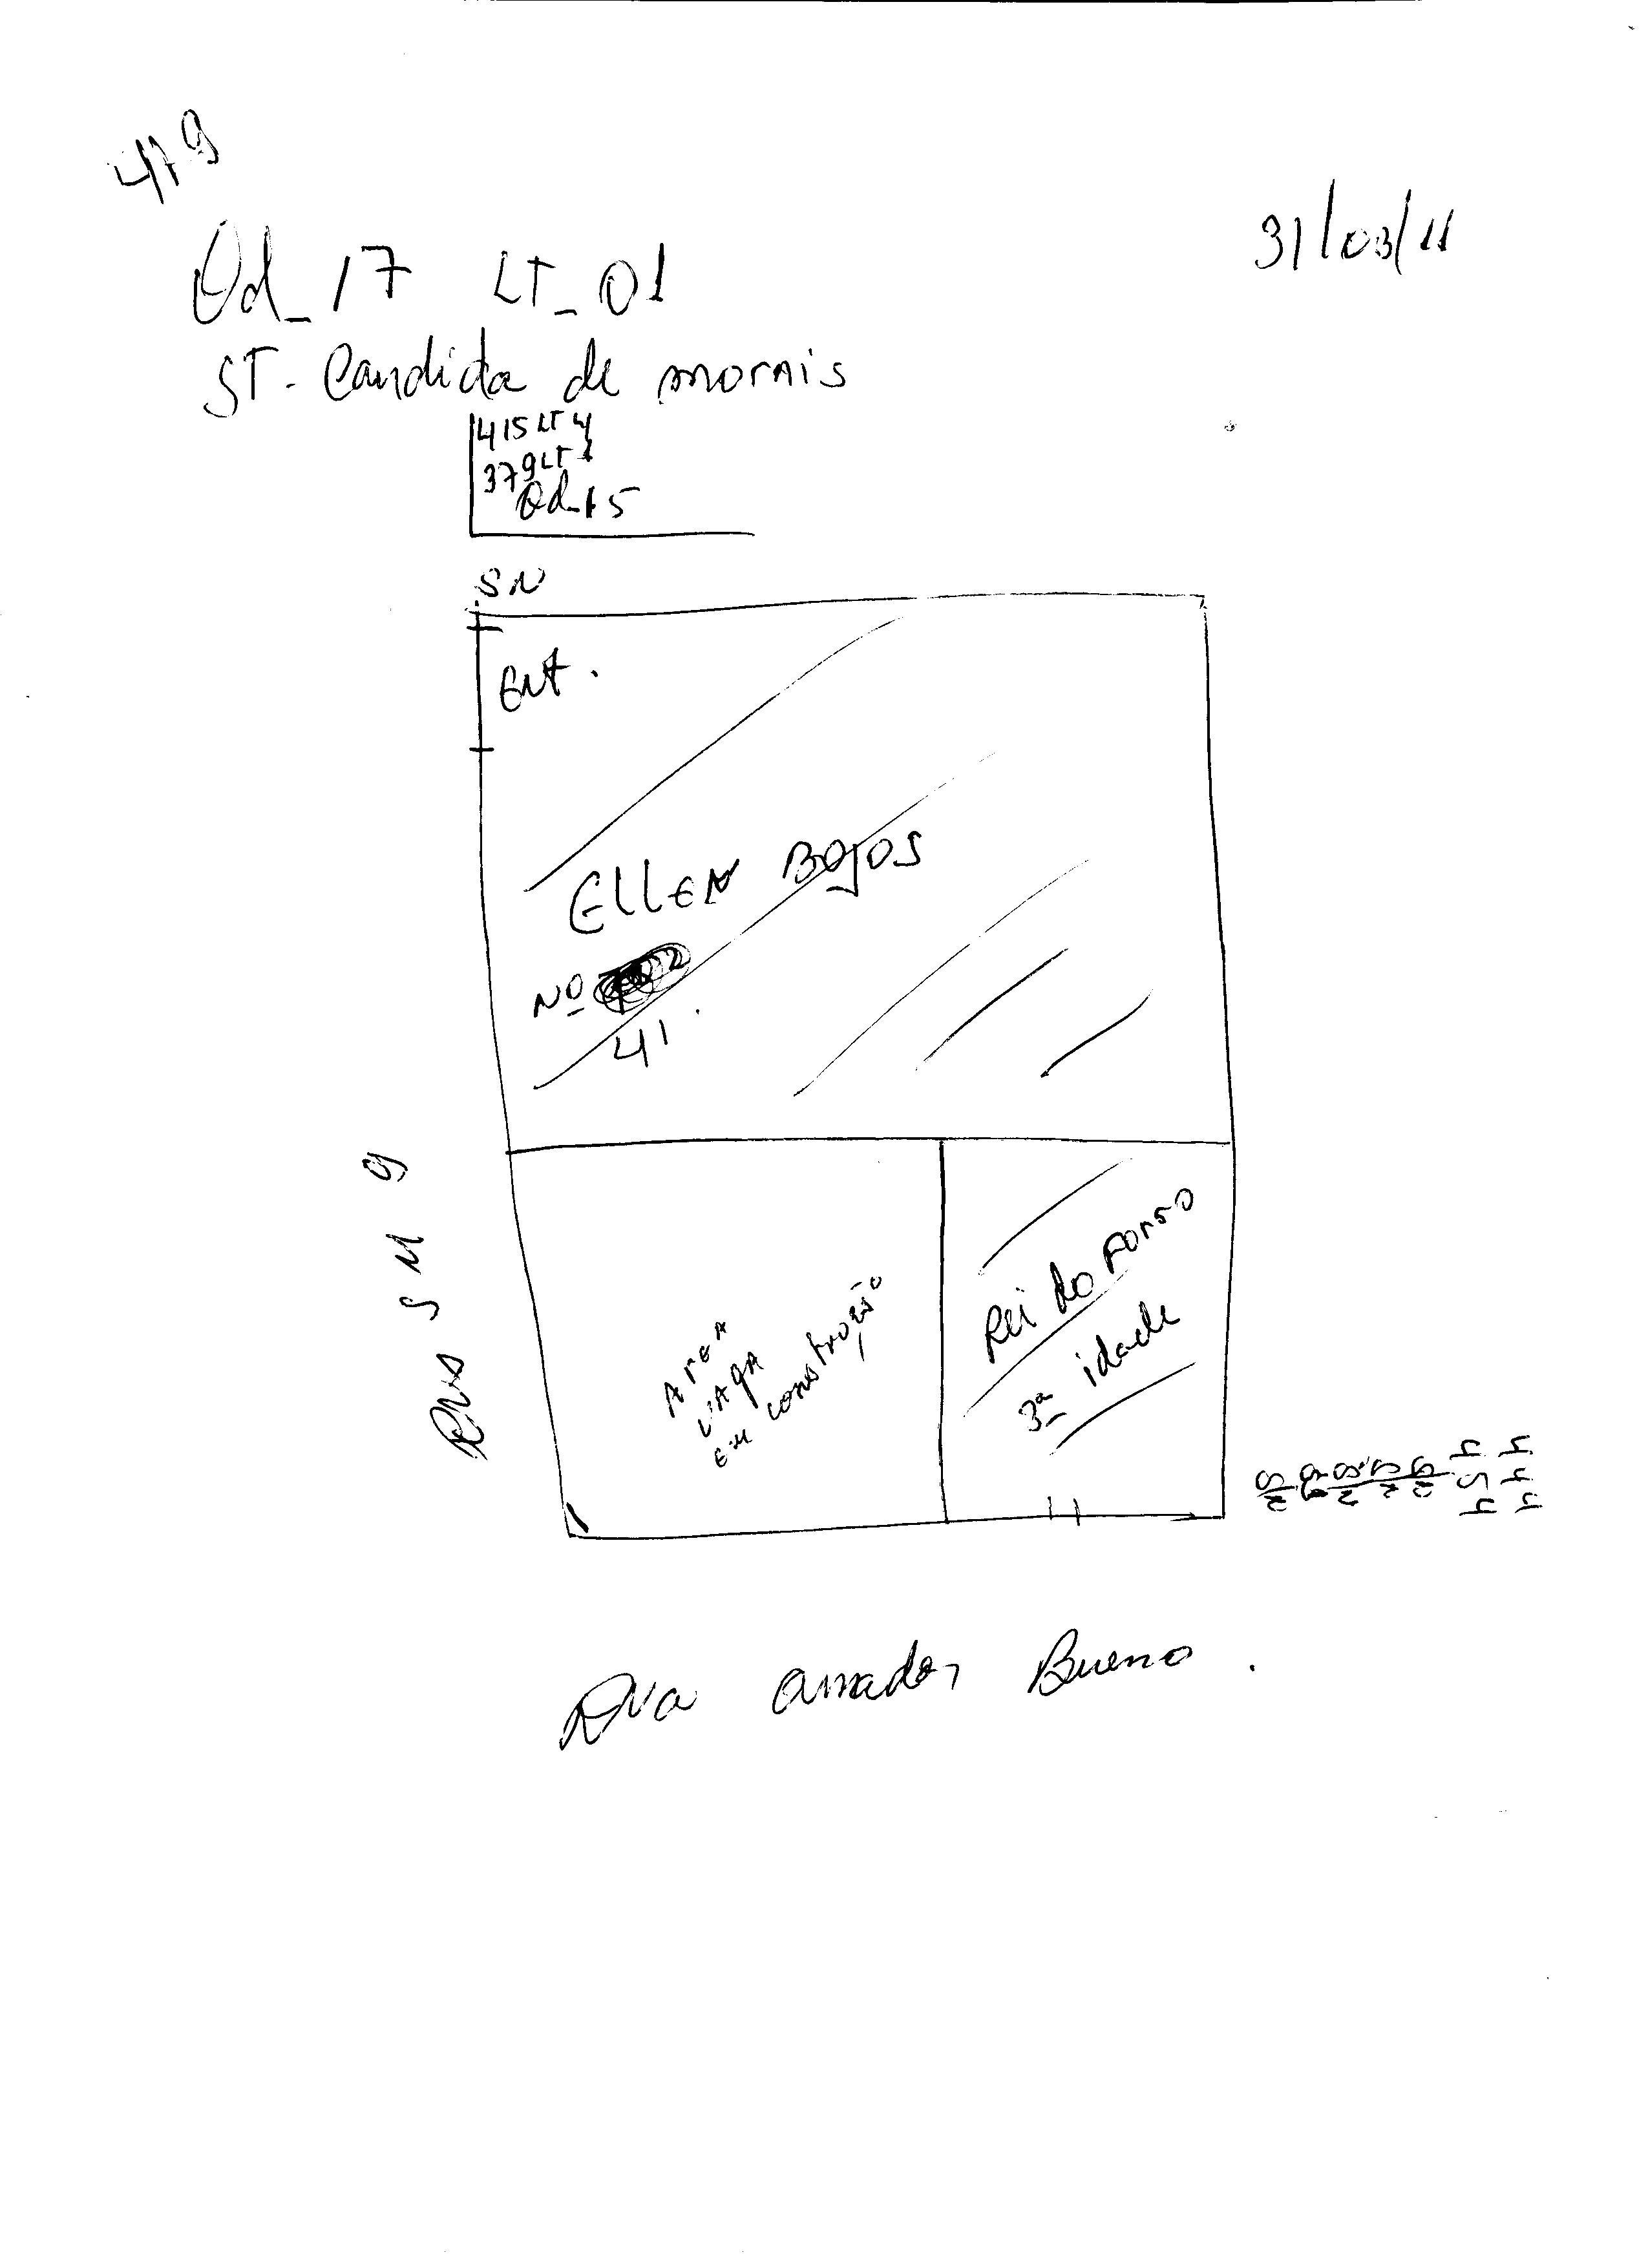 479
31/03/11
Qd_17 LT_01
ST. Candida de morais
415 LT 4
379 LT 1
Qd_15
SN
Ent.
ELLEN BOJOS
Nº
41.
Rua S M 9
Area
vaga
em construção
Rei do Forro
3ª idade
Rua amador Bueno.